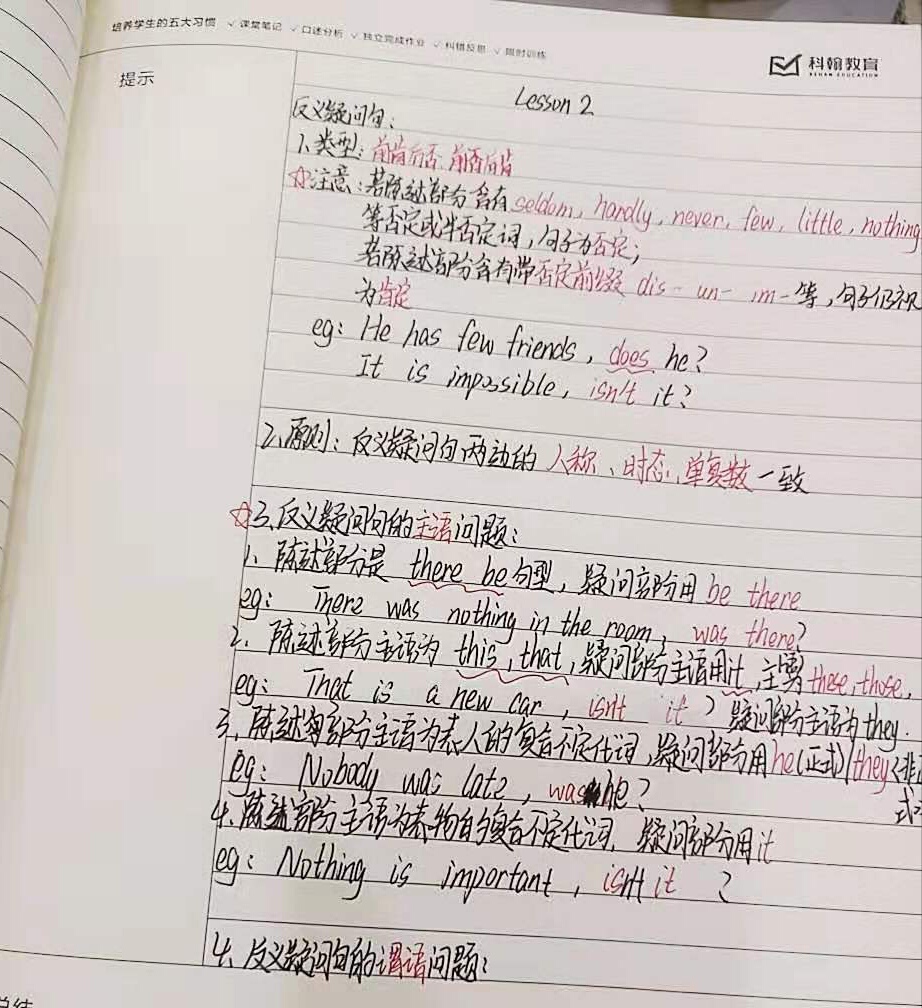 培养学生的五大习惯 ✓课堂笔记 ✓口述分析 ✓独立完成作业 ✓纠错反思 ✓限时训练
科翰教育
KEHAN EDUCATION
提示
Lesson 2
反义疑问句:
1、类型: 前肯后否 前否后肯
☆注意:若陈述部分含有seldom, hardly, never, few, little, nothing
等否定或半否定词,句子为否定;
若陈述部分含有带否定前缀 dis- un- im-等,句子仍视
为肯定
eg: He has few friends, does he?
It is impossible, isn't it?
2、原则: 反义疑问句两边的 人称、时态、单复数一致
☆3、反义疑问句的主语问题:
1、陈述部分是 there be句型, 疑问部分用 be there
eg: There was nothing in the room, was there?
2、陈述部分主语为 this, that, 疑问部分主语用it, 主 these, those,
eg: That is a new car, isn't it? 疑问部分主语为they.
3、陈述部分主语为表人的复合不定代词,疑问部分用he(正式)/they(非正
式)
eg: Nobody was late, was he?
4、陈述部分主语为表物的复合不定代词, 疑问部分用it
eg: Nothing is important, isn't it ?
4、反义疑问句的谓语问题:
总结